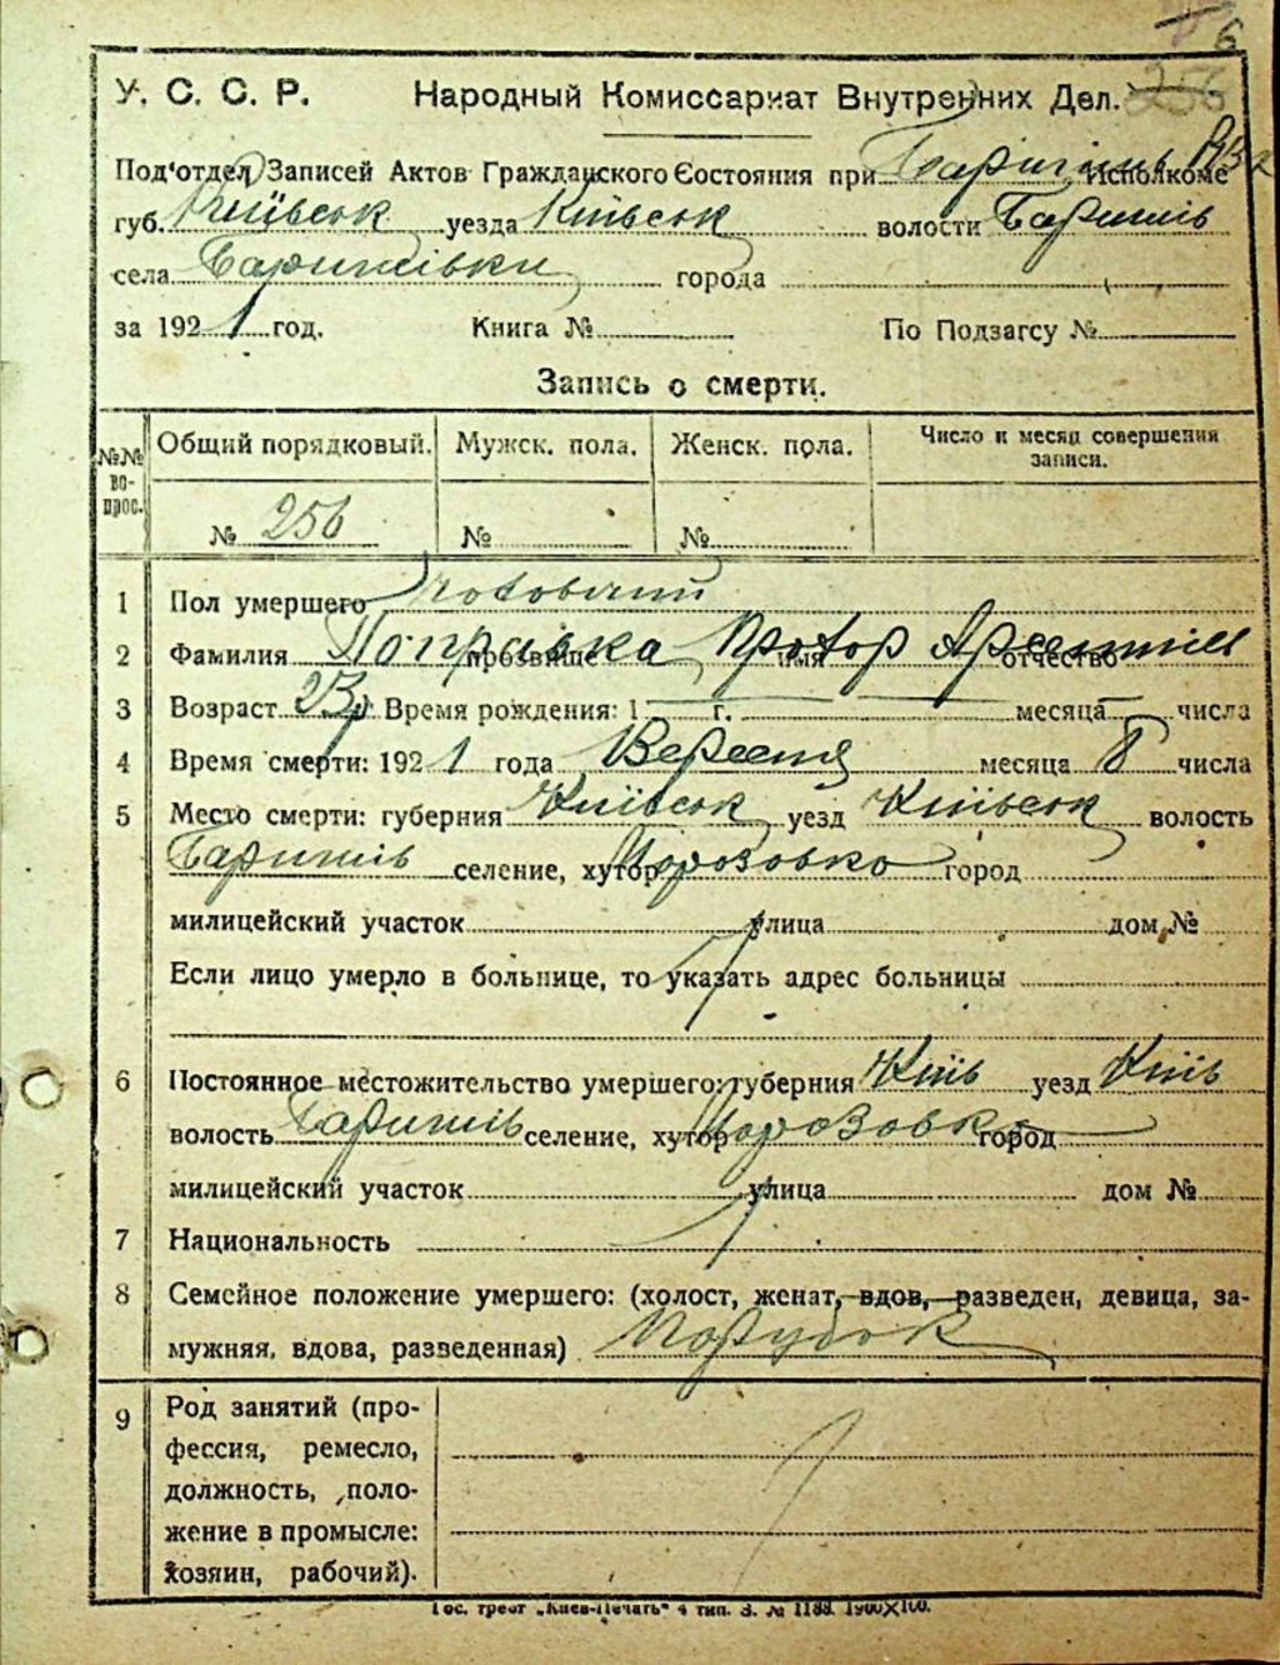 6
У. С. С. Р. Народный Комиссариат Внутренних Дел. 256
Под'отдел Записей Актов Гражданского Состояния при Исполкоме
губ. Київськ уезда Київськ волости Баришів
села Баришівки города
за 1921 год. Книга № По Подзагсу №
Запись о смерти.
№№ вопрос. Общий порядковый. Мужск. пола. Женск. пола. Число и месяц совершения записи.
№ 256 № №
1 Пол умершего Чоловічий
2 Фамилия прозвище Поправка имя Прохор отчество
3 Возраст 23 р Время рождения: 1 г. месяца числа
4 Время смерти: 1921 года Вересня месяца 8 числа
5 Место смерти: губерния Київськ уезд Київськ волость
Баришів селение, хутор Морозовка город
милицейский участок улица дом №
Если лицо умерло в больнице, то указать адрес больницы
6 Постоянное местожительство умершего: губерния Київ уезд Київ
волость Баришів селение, хутор Морозовка город
милицейский участок улица дом №
7 Национальность
8 Семейное положение умершего: (холост, женат, вдов, разведен, девица, за-
мужняя, вдова, разведенная) Парубок
9 Род занятий (про-
фессия, ремесло,
должность, поло-
жение в промысле:
хозяин, рабочий).
Гос. трест „Киев-Печать“ 4 тип. З. № 1188. 1900×100.